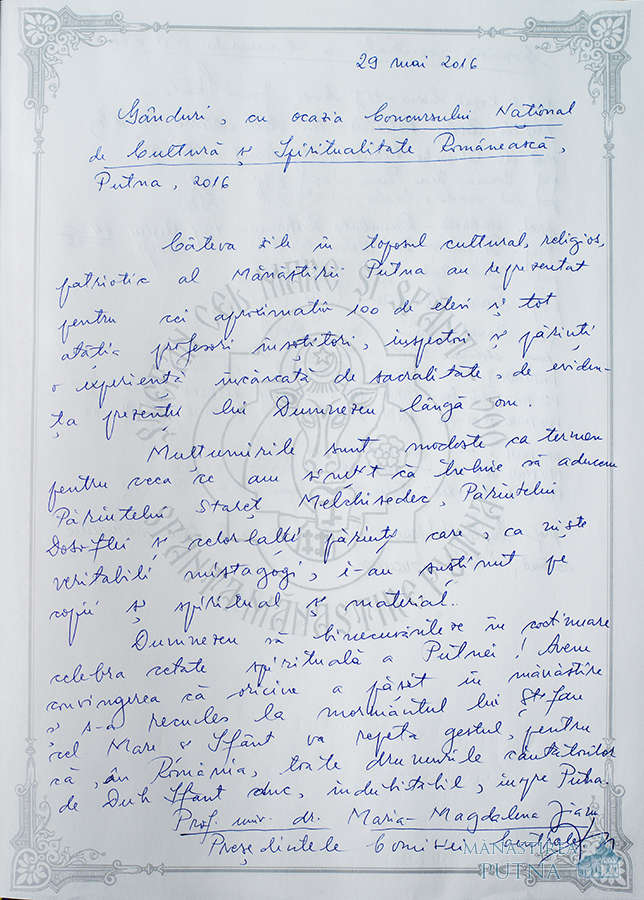 29 mai 2016
Gânduri, cu ocazia Concursului Național
de Cultură și Spiritualitate Românească,
Putna, 2016
Câteva zile în toposul cultural, religios,
patriotic al Mănăstirii Putna au reprezentat
pentru cei aproximativ 100 de elevi și tot
atâția profesori însoțitori, inspectori și părinți
o experiență încărcată de sacralitate, de eviden-
ța prezenței lui Dumnezeu lângă om.
Mulțumirile sunt modeste ca termen
pentru ceea ce am simțit că trebuie să aducem
Părintelui Stareț Melchisedec, Părintelui
Dosoftei și celorlalți părinți care, ca niște
veritabili mistagogi, i-au susținut pe
copii și spiritual și material.
Dumnezeu să binecuvânteze în continuare
celebra cetate spirituală a Putnei! Avem
convingerea că oricine a pășit în mănăstire
și s-a recules la mormântul lui Ștefan
cel Mare și Sfânt va repeta gestul, pentru
că, în România, toate drumurile căutătorilor
de Duh Sfânt duc, indubitabil, înspre Putna.
Prof. univ. dr. Maria-Magdalena Jianu
Președintele Comisiei Centrale
MĂNĂSTIREA
PUTNA
ȘTEFAN CEL MARE ȘI SFÂNT
MĂNĂSTIRE PUTNA